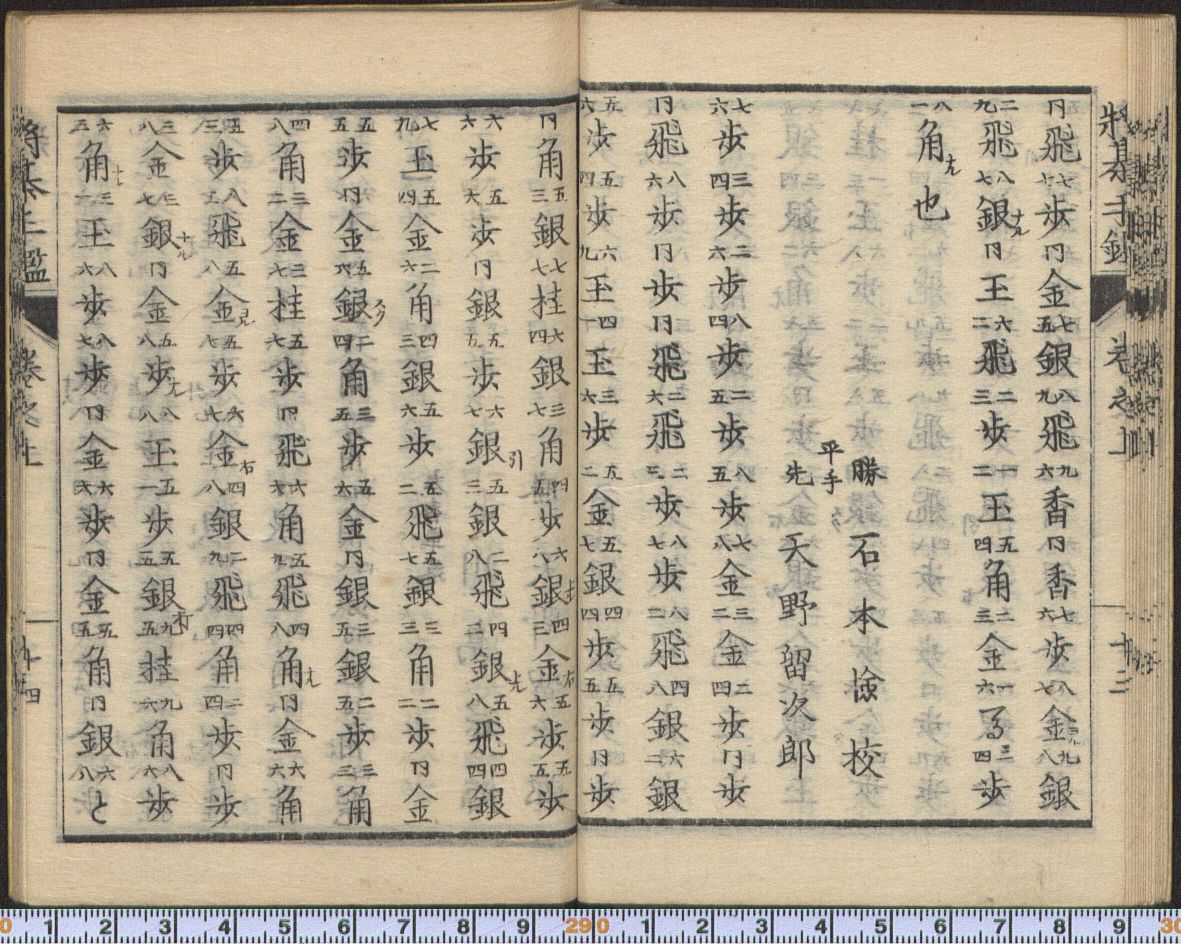 将棊手鑑 巻之上 十三
同飛七七歩同金七五銀八九飛九六香同香七六歩八七金九八銀
二九飛八七銀ナル同王六二飛二三歩一二王五四角二三金一六了三四歩
八一角ナル也
勝 石本検校
平手
先 天野留次郎
七六歩三四歩二六歩八四歩二五歩八五歩七八金三二金二四歩同歩
同飛八六歩同歩同飛二六飛二三歩八七歩八二飛四八銀六二銀
五六歩五四歩六九王四一王三六歩五二金五七銀四四歩五五歩同歩
同角五三銀七七桂六四銀三七角四五歩六八銀上四三金右五六歩五五歩
六六歩五六歩同銀五五歩六七銀引五三銀二八飛四二銀上五八飛四四銀
七九王五四金二六角四三銀五六歩五二飛五七銀三三角二二歩同金
五五歩同金五六銀二四角三五歩五六金同銀三五銀二五歩三三角
四八角三二金三七桂五七歩同飛六六角五九飛四八角ナル同金六六角
五三歩八五飛五八金五七歩六七金右四八銀二九飛四四角二四歩同歩
三八金三七銀ナル同金五八歩ナル八八王五一歩五五銀右九五桂九六角八六歩
六三角ナル三一王八六歩八七歩同金六六歩同金五五角同銀六八と
将棊手鑑 巻之上 十四